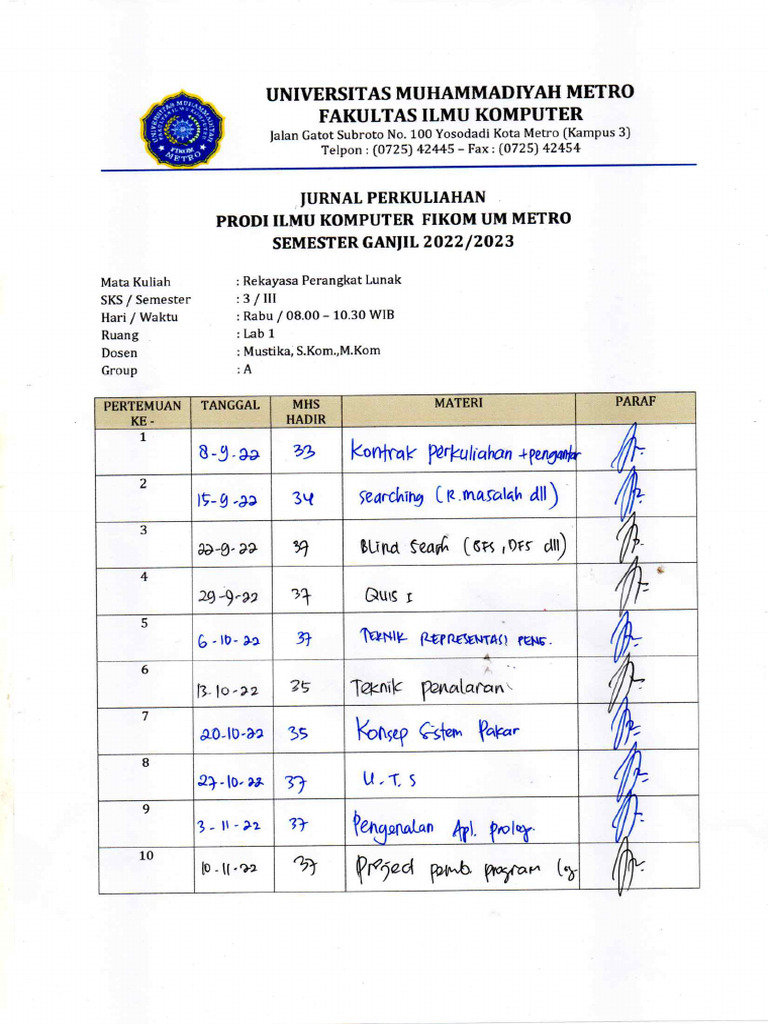 UNIVERSITAS MUHAMMADIYAH METRO
FAKULTAS ILMU KOMPUTER
Jalan Gatot Subroto No. 100 Yosodadi Kota Metro (Kampus 3)
Telpon : (0725) 42445 – Fax : (0725) 42454
UNIVERSITAS MUHAMMADIYAH
FAKULTAS ILMU KOMPUTER
FIKOM
METRO
JURNAL PERKULIAHAN
PRODI ILMU KOMPUTER FIKOM UM METRO
SEMESTER GANJIL 2022/2023
Mata Kuliah : Rekayasa Perangkat Lunak
SKS / Semester : 3 / III
Hari / Waktu : Rabu / 08.00 – 10.30 WIB
Ruang : Lab 1
Dosen : Mustika, S.Kom.,M.Kom
Group : A
PERTEMUAN KE - TANGGAL MHS HADIR MATERI PARAF
1 8-9-22 33 Kontrak perkuliahan + pengantar
2 15-9-22 34 searching (R.masalah dll)
3 22-9-22 37 Blind Searh (BFS, DFS dll)
4 29-9-22 37 QUIS I
5 6-10-22 37 TEKNIK REPRESENTASI PENG.
6 13-10-22 35 Teknik penalaran
7 20-10-22 35 Konsep Sistem Pakar
8 27-10-22 37 U.T.S
9 3-11-22 37 Pengenalan Apl. prolog.
10 10-11-22 37 Project pemb. program